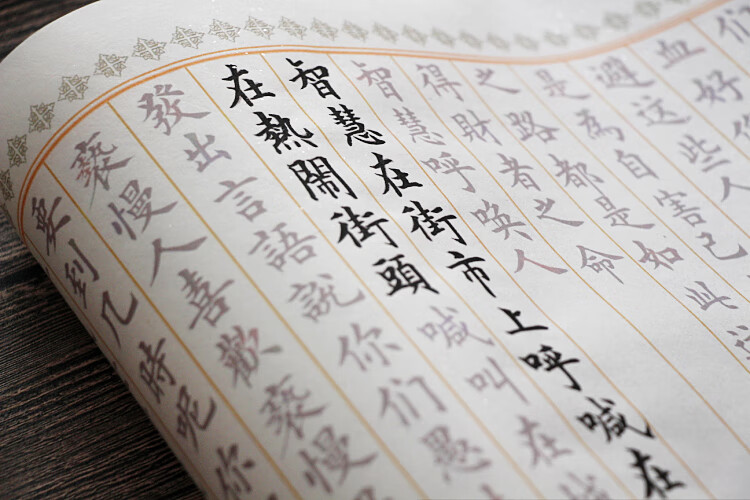 们
血好
避这些人
是為自害己
之路都是如此
得財者之命
智慧呼唤人
智慧在街市上呼喊在
在熱鬧街頭喊叫在
發出言語說你们愚
褻慢人喜歡褻慢
要到几時呢你